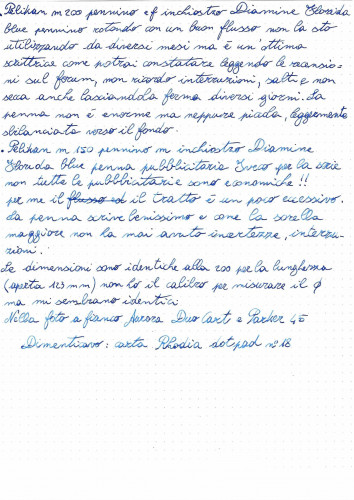 • Pelikan m200 pennino ef inchiostro Diamine Florida
blue pennino rotondo con un buon flusso non la sto
utilizzando da diversi mesi ma è un'ottima
scrittrice come potrai constatare leggendo le recensio=
ni sul forum, non ricordo interruzioni, salti e non
secca anche lasciandola ferma diversi giorni. La
penna non è enorme ma neppure piccola, leggermente
sbilanciata verso il fondo.
• Pelikan m 150 pennino m inchiostro Diamine
Florida blue penna pubblicitaria Iveco per la serie
non tutte le pubblicitarie sono economiche !!
per me il flusso ed il tratto è un poco eccessivo.
La penna scrive benissimo e come la sorella
maggiore non ha mai avuto incertezze, interru-
zioni.
Le dimensioni sono identiche alla 200 per la lunghezza
(aperta 123 mm) non ho il calibro per misurare il ø
ma mi sembrano identici
Nella foto a fianco Aurora Duo Cart e Parker 45
Dimenticavo: carta Rhodia dotpad n° 18